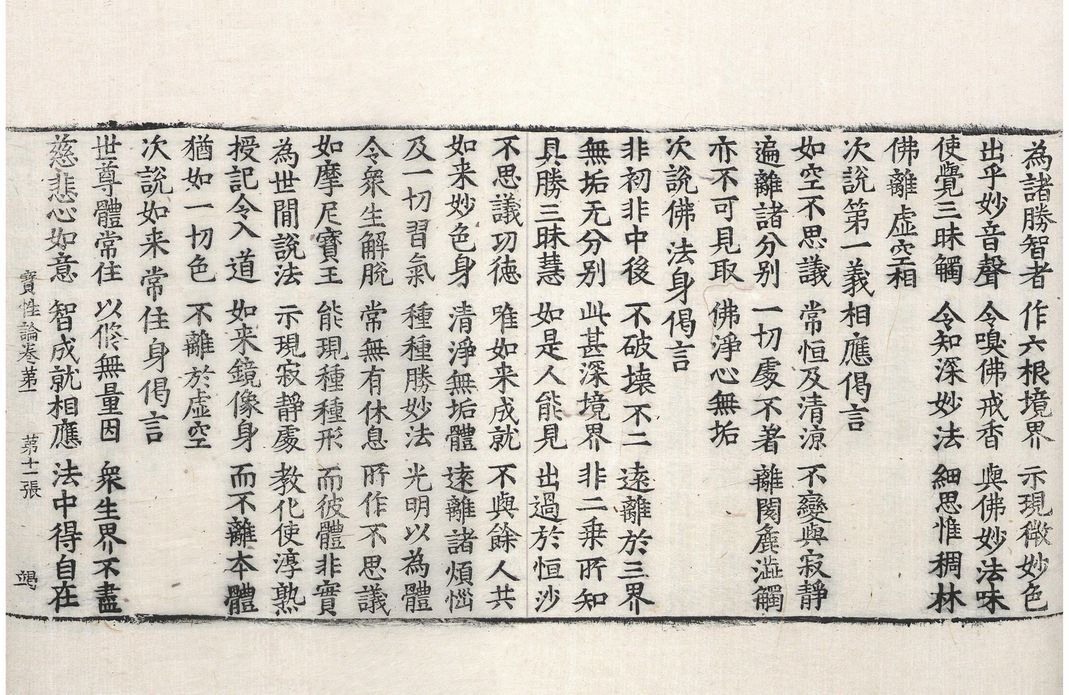 為諸勝智者 作六根境界 示現微妙色
出乎妙音聲 令嗅佛戒香 與佛妙法味
使覺三昧觸 令知深妙法 細思惟稠林
佛離虛空相
次說第一義相應偈言
如空不思議 常恒及清涼 不變與寂靜
遍離諸分別 一切處不著 離閡麁澁觸
亦不可見取 佛淨心無垢
次說佛法身偈言
非初非中後 不破壞不二 遠離於三界
無垢无分別 此甚深境界 非二乗所知
具勝三昧慧 如是人能見 出過於恒沙
不思議功徳 唯如来成就 不與餘人共
如来妙色身 清淨無垢體 遠離諸煩惱
及一切習氣 種種勝妙法 光明以為體
令衆生解脫 常無有休息 所作不思議
如摩尼寶王 能現種種形 而彼體非實
為世間說法 示現寂靜處 教化使淳熟
授記令入道 如来鏡像身 而不離本體
猶如一切色 不離於虛空
次說如来常住身偈言
世尊體常住 以修無量因 衆生界不盡
慈悲心如意 智成就相應 法中得自在
寶性論卷第一 第十一張